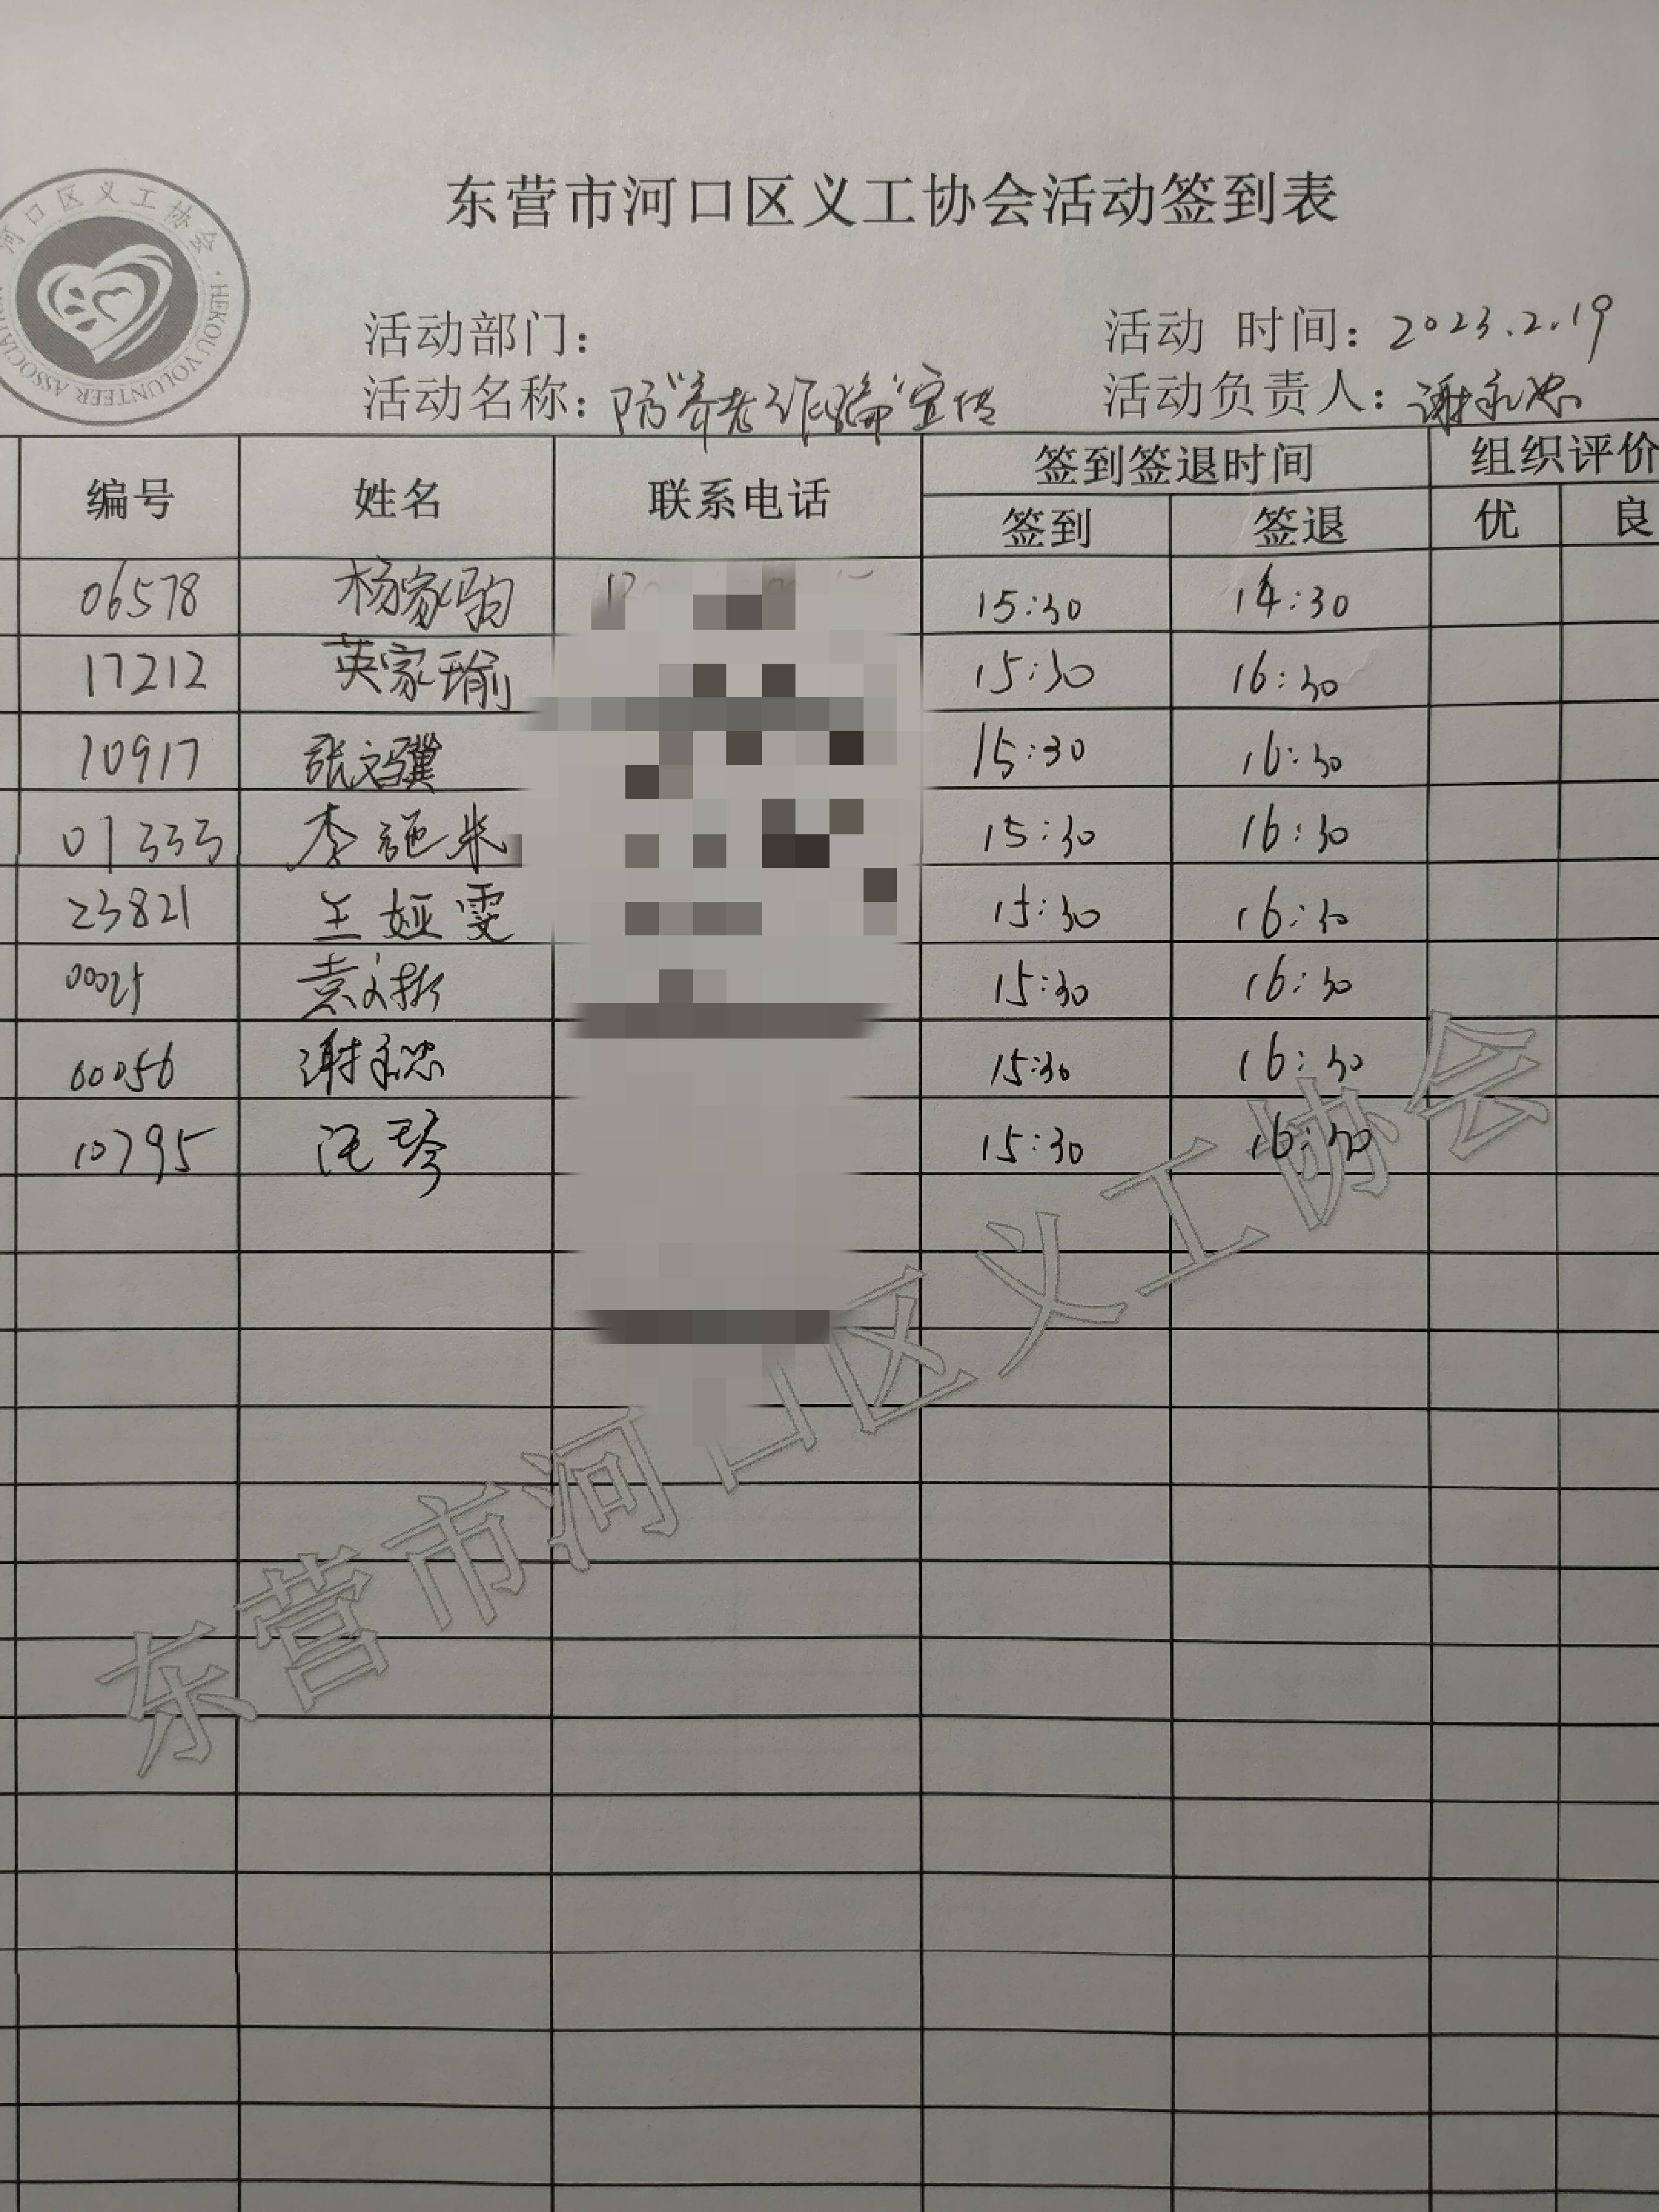 东营市河口区义工协会活动签到表
河口区义工协会·HEKOU VOLUNTEER ASSOCIATION
活动部门: 活动 时间: 2023.2.19
活动名称: 防"养老诈骗"宣传 活动负责人: 谢永忠
编号 姓名 联系电话 签到签退时间 组织评价
签到 签退 优 良
06578 杨家 15:30 14:30
17212 英家瑜 15:30 16:30
10917 张文骥 15:30 16:30
01333 李 米 15:30 16:30
23821 王娅雯 15:30 16:30
00025 袁文彬 15:30 16:30
00056 谢永忠 15:30 16:30
10795 汪琴 15:30 16:30
东营市河口区义工协会